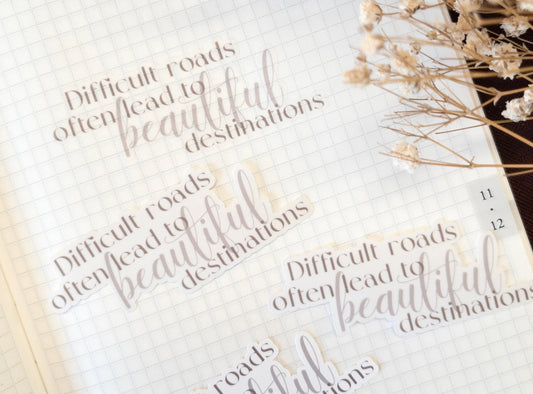 Difficult roads
often lead to
beautiful
destinations
Difficult roads
often lead to
beautiful
destinations
11
·
12
Difficult roads
often lead to
beautiful
destinations
roads
to
beautiful
destinations